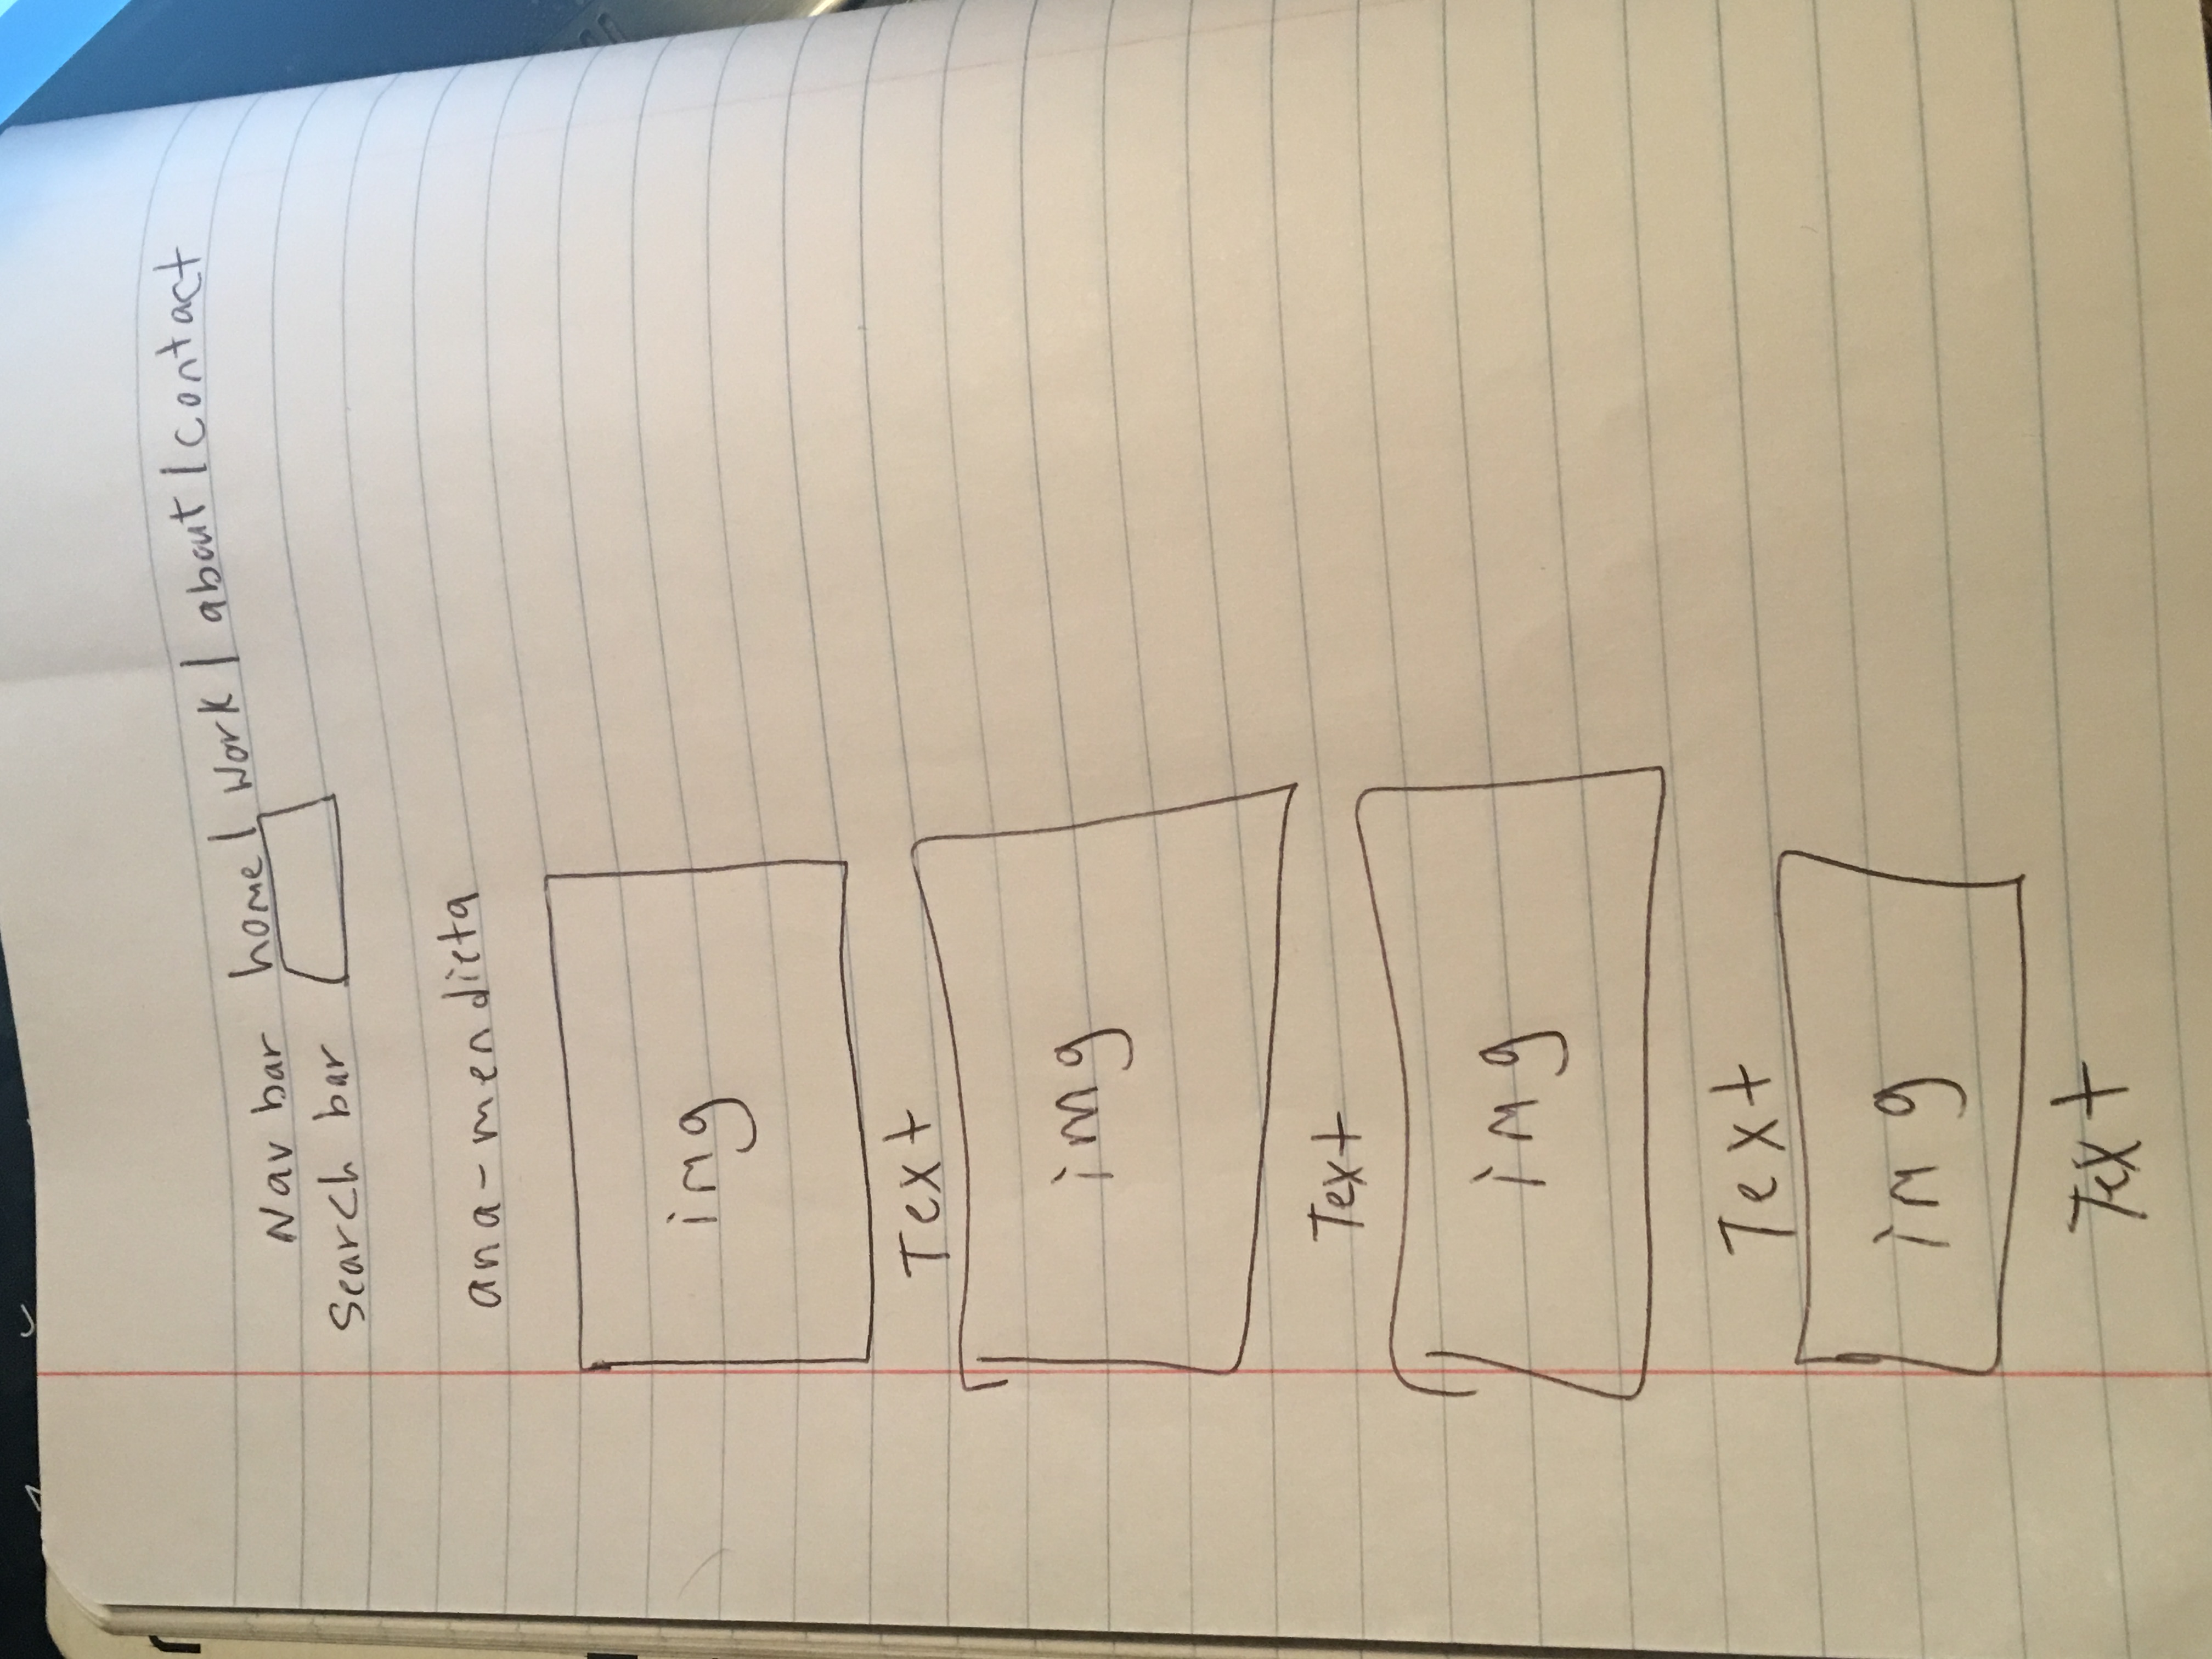 Nav bar home | Work | about | contact
Search bar
ana-mendieta
img
Text
img
Text
img
Text
img
Text